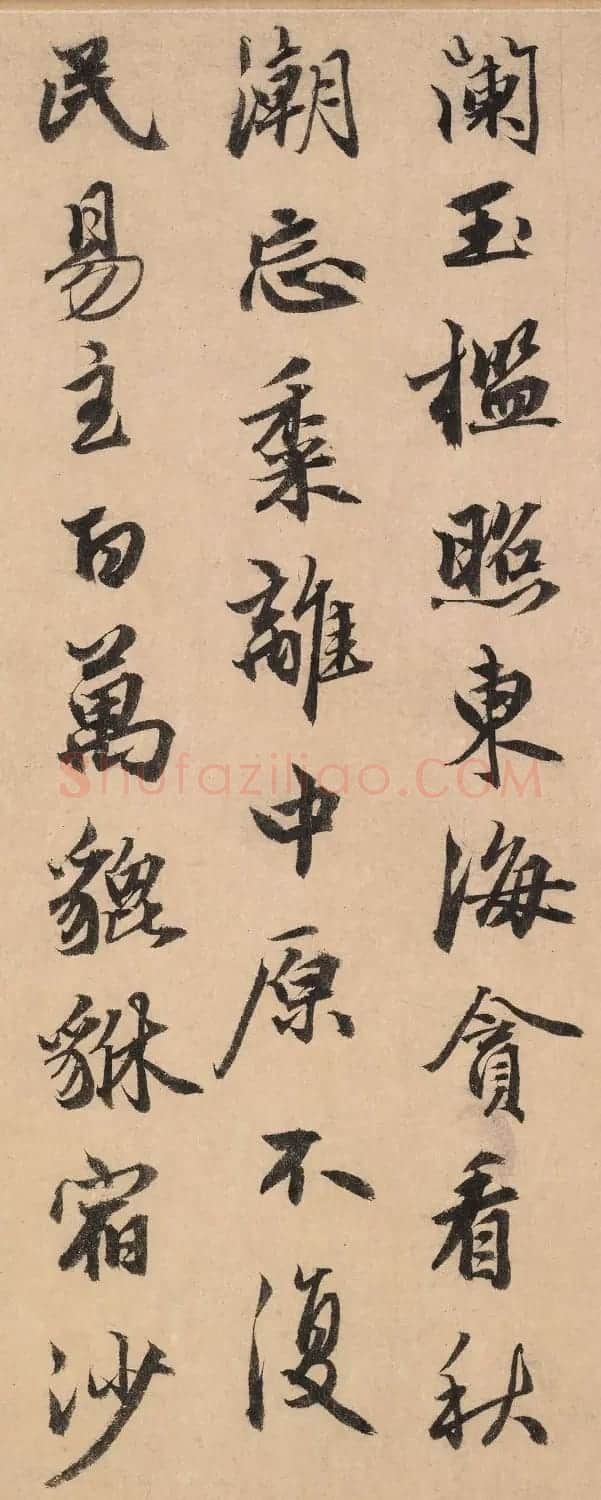 蘭玉檻照東海貪看秋
潮忘黍離中原不復
民易主百萬貔貅宿沙
Shufaziliao.COM